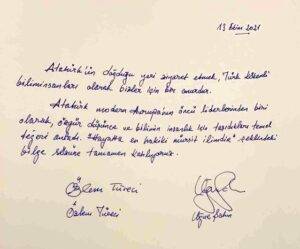 13 Ekim 2021
Atatürk'ün doğduğu yeri ziyaret etmek, Türk kökenli
biliminsanları olarak bizler için bir onurdur.
Atatürk modern Avrupa'nın öncü liderlerinden biri
olarak, özgür düşünce ve bilimin insanlık için taşıdıkları temel
değeri anladı. "Hayatta en hakiki mürşit ilimdir" şeklindeki
bilge sözüne tamamen katılıyoruz.
Özlem Türeci
Özlem Türeci Uğur Şahin